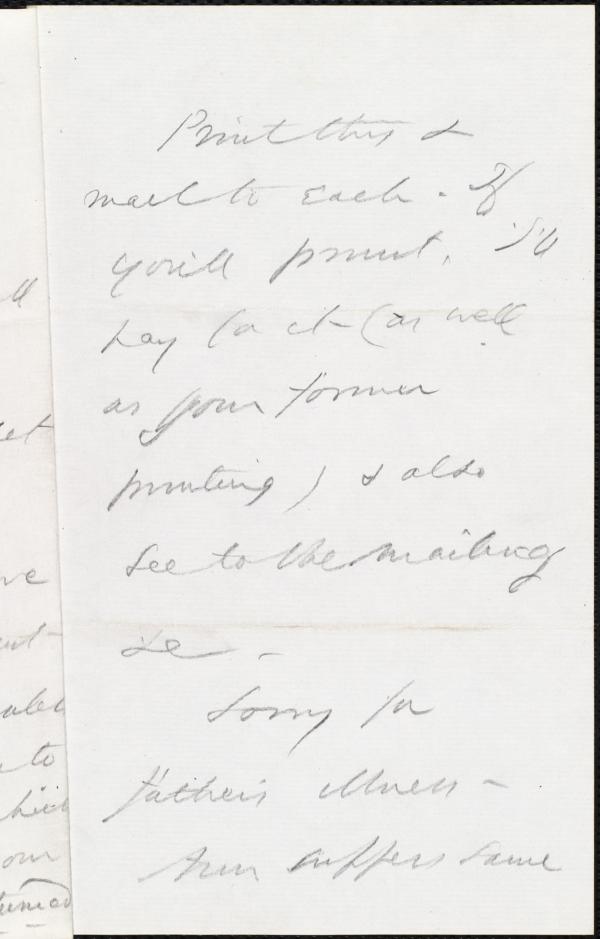 Print this &
mail to each - If
you'll print, I'll
pay for it - (as well
as your former
printing) & also
see to the mailing
&c -
Sorry for
father's illness -
Ann suffers same
ll
et
ve
to
our